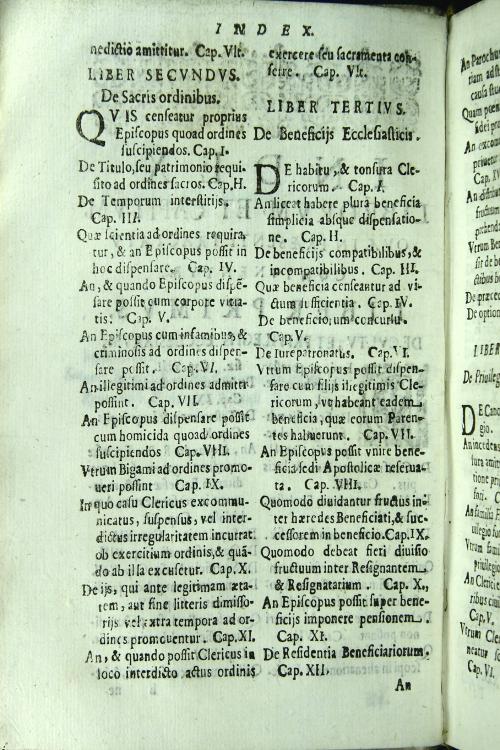 INDEX.
nedictio amittitur. Cap. Vlt.
LIBER SECVNDVS.
De Sacris ordinibus.
QVIS censeatur proprius
Episcopus quoad ordines
suscipiendos. Cap. I.
De Titulo, seu patrimonio requi-
sito ad ordines sacros. Cap. H.
De Temporum interstitijs.
Cap. III.
Quæ scientia ad ordines requira
tur, & an Episcopus possit in
hoc dispensare. Cap. IV.
An, & quando Episcopus dispē-
sare possit cum corpore vitia-
tis. Cap. V.
An Episcopus cum infamibus, &
criminosis ad ordines dispen-
sare possit. Cap. VI.
An illegitimi ad ordines admitti
possint. Cap. VII.
An Episcopus dispensare possit
cum homicida quoad ordines
suscipiendos Cap. VIII.
Vtrum Bigami ad ordines promo-
ueri possint Cap. IX.
In quo casu Clericus excommu-
nicatus, suspensus, vel inter-
dictus irregularitatem incurrat
ob exercitium ordinis, & quā-
do ab illa excusetur. Cap. X.
De ijs, qui ante legitimam æta-
tem, aut sine litteris dimisso-
rijs vel extra tempora ad or-
dines promouentur. Cap. XI.
An, & quando possit Clericus in
loco interdicto actus ordinis
exercere seu sacramenta con-
ferre. Cap. Vlt.
LIBER TERTIVS.
De Beneficijs Ecclesiasticis.
DE habitu, & tonsura Cle-
ricorum. Cap. I.
An liceat habere plura beneficia
simplicia absque dispensatio-
ne. Cap. II.
De beneficijs compatibilibus, &
incompatibilibus. Cap. III.
Quæ beneficia censeantur ad vi-
ctum sufficientia. Cap. IV.
De beneficiorum concursu.
Cap. V.
De Iurepatronatus. Cap. VI.
Vtrum Episcopus possit dispen-
sare cum filijs illegitimis Cle-
ricorum, vt habeant eadem
beneficia, quæ eorum Paren-
tes habuerunt. Cap. VII.
An Episcopus possit vnire bene-
ficia sedi Apostolicæ reserua-
ta. Cap. VIII.
Quomodo diuidantur fructus in-
ter hæredes Beneficiati, & suc-
cessorem in beneficio. Cap. IX.
Quomodo debeat fieri diuisio
fructuum inter Resignantem
& Resignatarium. Cap. X.
An Episcopus possit super bene-
ficijs imponere pensionem.
Cap. XI.
De Residentia Beneficiariorum.
Cap. XII.
An
An Parochu
An excom
Cap. IV
Vtrum Ben
De præce
De option
LIBER
De Priuileg
DE Cano
gio.
An incedens
An familia
vllegio
Cap. V.
Cap. VI.